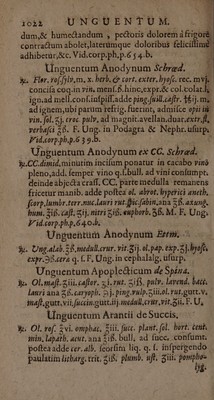 1022 UNGUENTUM.
dum, & humectandum , pectoris dolorem à frigore
contractum abolet, laterumque doloribus feliciſſimè
adhibetur, &c. Vid. corp. ph. p. 654. b.
Unguentum Anodynum Schrœd.
℞. Flor. roſ. ſylv. m. x. herb. & cort. exter. hyoſc. rec. m vj.
conciſa coq. in vin. menſ. ß. hinc, expr. & col. colat. ħ,
ign. ad mell. conſiſt. piſſ. adde ping. ſuill. caſtr. ℔j. m.
ad ignem, ubi parum inſtrig. fuerint, admiſce opii in
vin. ſol. ʒj. croc. pulv. ad magnit. avellan. duar. ext. ſl.
verbaſci ʒß. F. Ung. in Podagra & Nephr. uſurp.
Vid. corp. ph. p. 639. b.
Unguentum Anodynum ex CC. Schrœd.
℞. CC. dimid. minutim inciſum ponatur in cacabo vinò
pleno, add. ſemper vino q. ſ. bull. ad vini conſumpt.
deinde abjecta craſſ. CC. parte medulla remanens
fricetur manib. adde poſtea ol. abrot. hyperici aneth.
ſcorp. lumbr. terr. nuc. lauri rut. ſpic. ſabin. ana ʒß. axung.
hum. ʒiß. caſt. ʒij. nitri ʒiß. euphorb. ʒß. M. F. Ung.
Vid. corp. ph. p. 640. b.
Unguentum Anodynum Etm.
℞. Ung. alab. ʒß. medull. crur. vit. ʒij. ol. pap. exp. ʒj. hyoſc.
expr. cera q. ſ. F. Ung. in cephalalg. uſurp.
Unguentum Apoplecticum de Spina.
℞. Ol. maſt. ʒiij. caſtor. ʒj. rut. ʒiß. pulv. lavend. bacc.
lauri ana ʒß. caryoph. ʒj. ping. vulp. ʒiii. ol. rut. gutt. v.
maſt. gutt. vii. ſuccin. gutt. iij. medull. crur. vit. ʒii. F. U.
Unguentum Arantii de Succis.
℞. Ol. roſ. ʒvi. omphac. ʒiii. ſucc. plant. ſol. hort. cent.
min. lapath. acut. ana ʒiß. bull. ad ſucc. conſumt.
poſtea adde cer. alb. ſeorſim liq. q. ſ. inſpergendo
paulatim litharg. trit. ʒiß. plumb. uſt. ʒiii. pompho-
lyg.